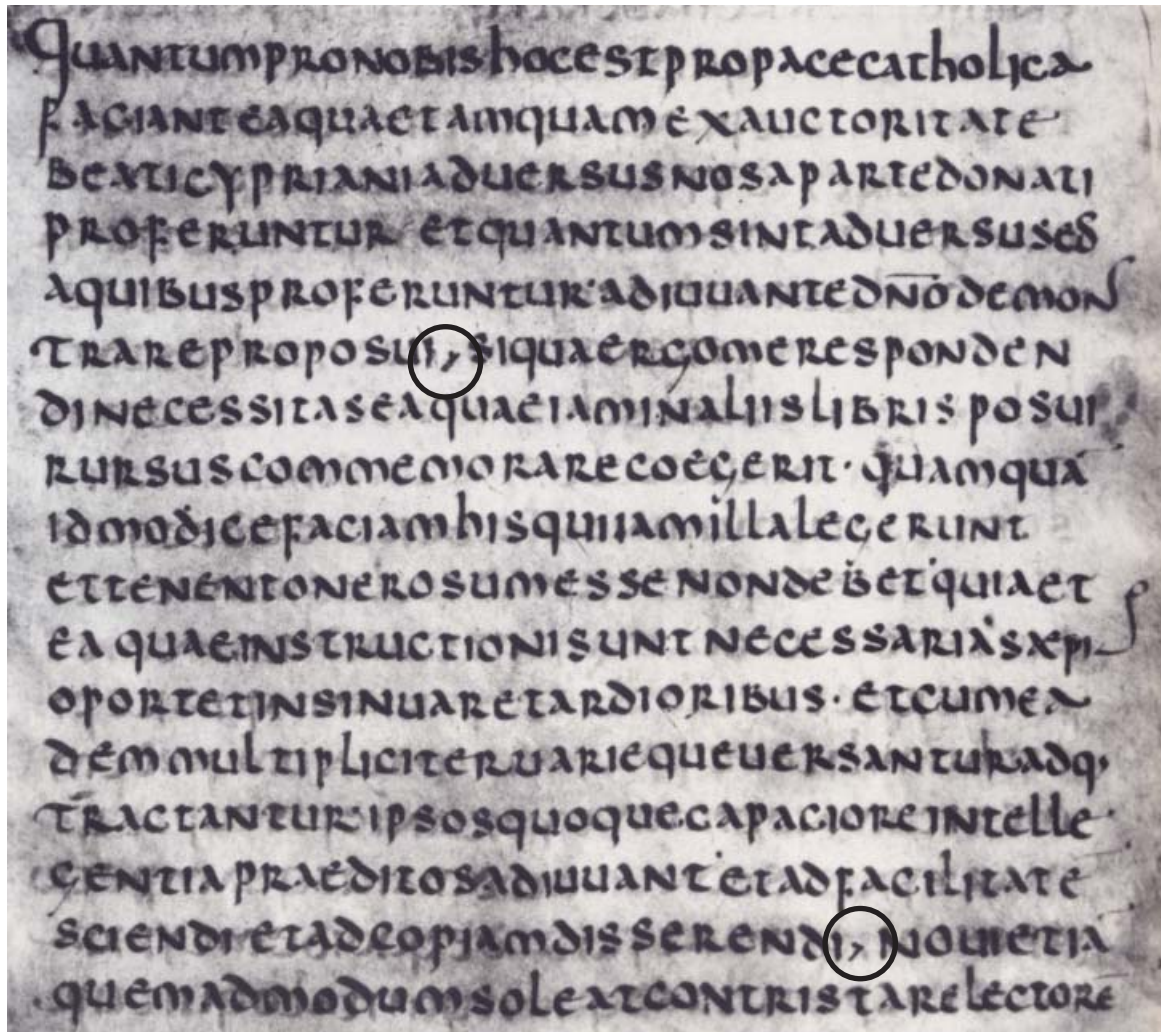 QUANTUMPRONOBISHOCESTPROPACECATHOLICA
FACIANTEAQUAETAMQUAMEXAUCTORITATE
BEATICYPRIANIADUERSUSNOSAPARTEDONATI
PROFERUNTUR ETQUANTUMSINTADUERSUSEOS
AQUIBUSPROFERUNTUR·ADIUUANTEDN̅O̅DEMONS
TRAREPROPOSUI, SIQUAERGOMERESPONDEN
DINECESSITASEAQUAEIAMINALIISLIBRISPOSUI
RURSUSCOMMEMORARECOEGERIT· QUAMQUA
IDMODICEFACIAMHISQUIIAMILLALEGERUNT
ETTENENTONEROSUMESSENONDEBET·QUIAET
EA QUAEINSTRUCTIONISUNT NECESSARIASAEPI
OPORTETINSINUARETARDIORIBUS· ETCUMEA
DEMMULTIPLICITERUARIEQUEUERSANTURADQ·
TRACTANTUR·IPSOSQUOQUECAPACIOREINTELLE
GENTIAPRAEDITOSADIUUANT·ETADFACILITATE
SCIENDIETADCOPIAMDISSERENDI, NOUIETIA
QUEMADMODUMSOLEATCONTRISTARELECTORE